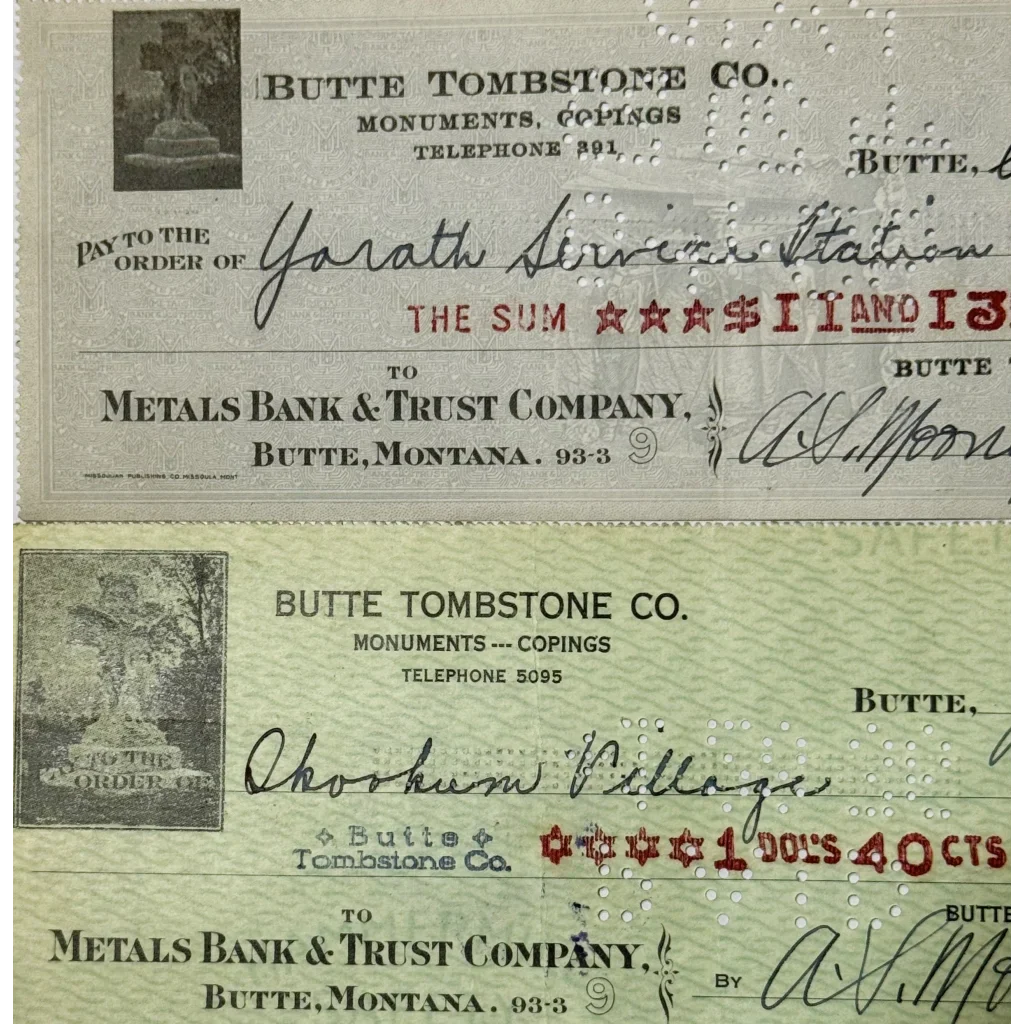 BUTTE TOMBSTONE CO.
MONUMENTS, COPINGS
TELEPHONE 891
BUTTE,
PAY TO THE ORDER OF Yorath Service Station
THE SUM ★★★$11 AND 13
TO
BUTTE
METALS BANK & TRUST COMPANY,
BUTTE, MONTANA. 93-3 9
A.S. Moon
MISSOULIAN PUBLISHING CO. MISSOULA, MONT
SAFE
BUTTE TOMBSTONE CO.
MONUMENTS --- COPINGS
TELEPHONE 5095
BUTTE,
TO THE ORDER OF Skookum Village
Butte
Tombstone Co.
✡✡✡✡1 DOL'S 40 CTS
TO
BUTTE
METALS BANK & TRUST COMPANY,
BUTTE, MONTANA. 93-3 9
BY A.S. Mo